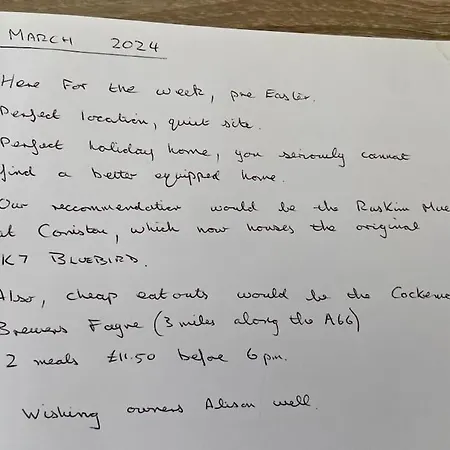 MARCH 2024
Here for the week, pre Easter.
Perfect location, quiet site.
Perfect holiday home, you seriously cannot
find a better equipped home.
Our recommendation would be the Ruskin Mue
at Coniston, which now houses the original
K7 BLUEBIRD.
Also, cheap eat outs would be the Cockerm
Brewers Fayre (3 miles along the A66)
2 meals £11.50 before 6pm.
Wishing owners Alison well.